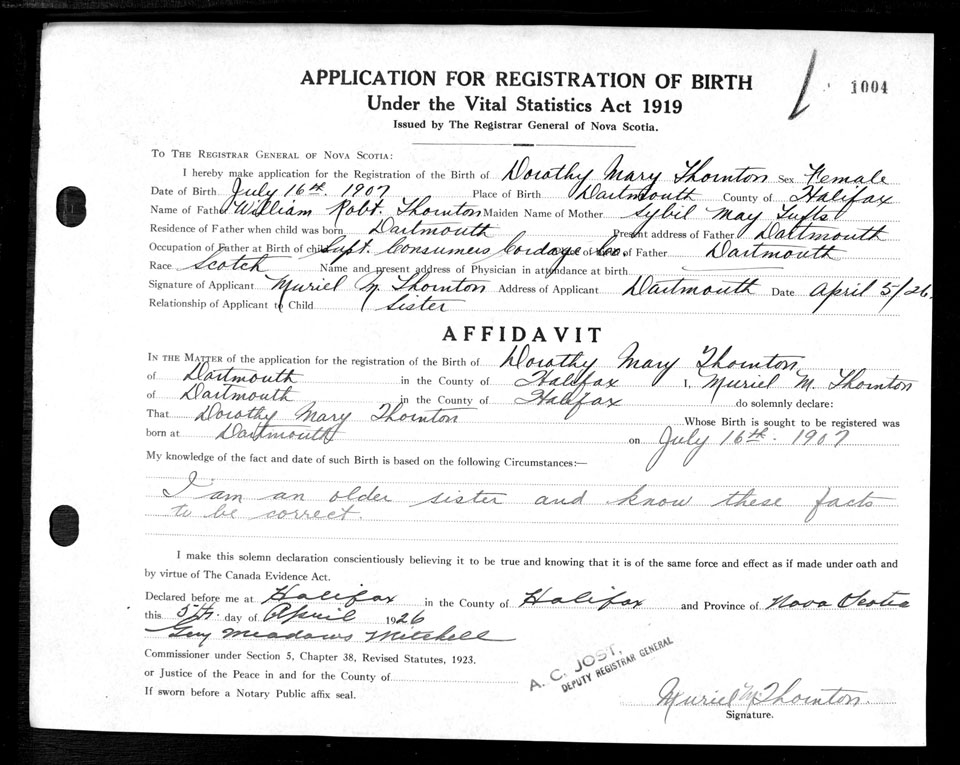 APPLICATION FOR REGISTRATION OF BIRTH
1004
Under the Vital Statistics Act 1919
Issued by The Registrar General of Nova Scotia.
To The Registrar General of Nova Scotia:
I hereby make application for the Registration of the Birth of Dorothy Mary Thornton Sex Female
Date of Birth July 16th. 1907 Place of Birth Dartmouth County of Halifax
Name of Father William Robt. Thornton Maiden Name of Mother Sybil May Tufts
Residence of Father when child was born Dartmouth Present address of Father Dartmouth
Occupation of Father at Birth of child Supt. Consumers Cordage Co. of Father Dartmouth
Race Scotch Name and present address of Physician in attendance at birth
Signature of Applicant Muriel M. Thornton Address of Applicant Dartmouth Date April 5/26.
Relationship of Applicant to Child Sister
AFFIDAVIT
In the Matter of the application for the registration of the Birth of Dorothy Mary Thornton
of Dartmouth in the County of Halifax I, Muriel M. Thornton
of Dartmouth in the County of Halifax do solemnly declare:
That Dorothy Mary Thornton Whose Birth is sought to be registered was
born at Dartmouth on July 16th. 1907
My knowledge of the fact and date of such Birth is based on the following Circumstances:—
I am an older sister and know these facts
to be correct.
I make this solemn declaration conscientiously believing it to be true and knowing that it is of the same force and effect as if made under oath and
by virtue of The Canada Evidence Act.
Declared before me at Halifax in the County of Halifax and Province of Nova Scotia
this 5th. day of April 1926
Meadows Mitchell
Commissioner under Section 5, Chapter 38, Revised Statutes, 1923.
or Justice of the Peace in and for the County of
If sworn before a Notary Public affix seal.
A. C. JOST,
DEPUTY REGISTRAR GENERAL
Muriel M. Thornton.
Signature.